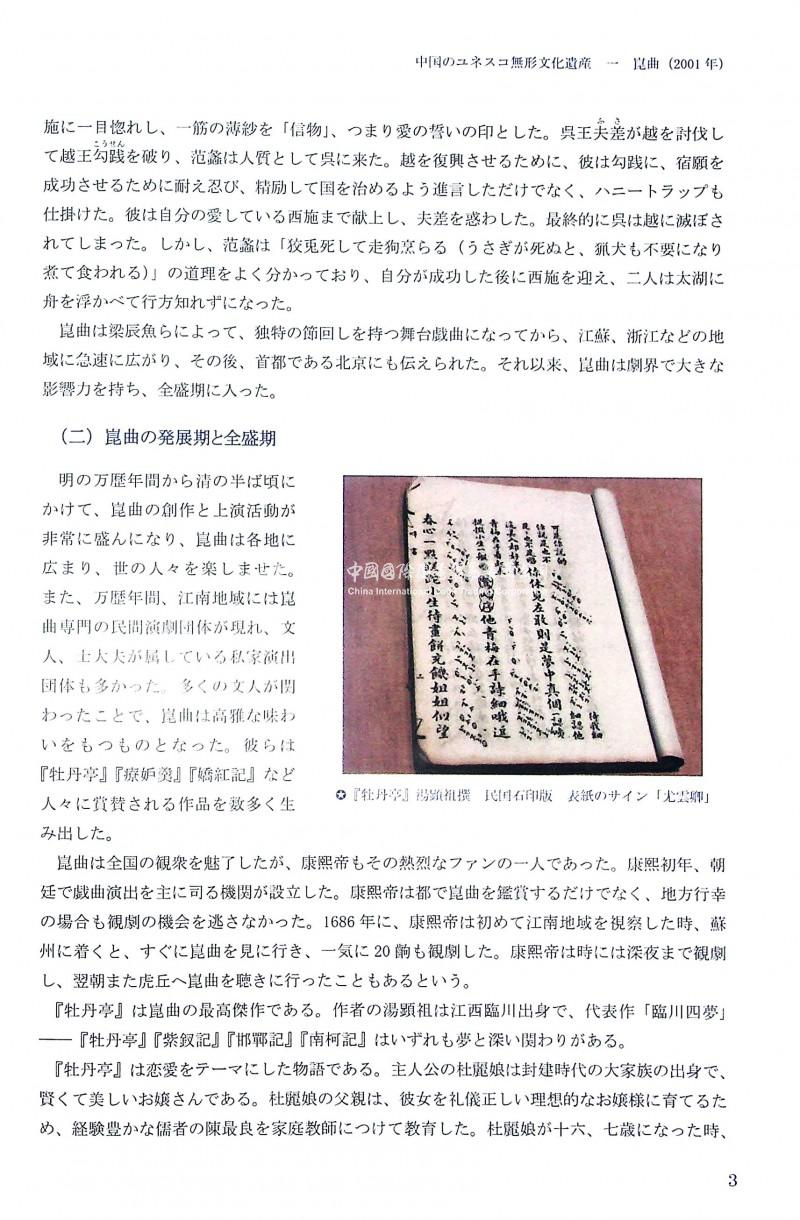 中国のユネスコ無形文化遺産　一　崑曲（2001 年）
施に一目惚れし、一筋の薄紗を「信物」、つまり愛の誓いの印とした。呉王夫差が越を討伐し
て越王勾践を破り、范蠡は人質として呉に来た。越を復興させるために、彼は勾践に、宿願を
成功させるために耐え忍び、精励して国を治めるよう進言しただけでなく、ハニートラップも
仕掛けた。彼は自分の愛している西施まで献上し、夫差を惑わした。最終的に呉は越に滅ぼさ
れてしまった。しかし、范蠡は「狡兎死して走狗烹らる（うさぎが死ぬと、猟犬も不要になり
煮て食われる）」の道理をよく分かっており、自分が成功した後に西施を迎え、二人は太湖に
舟を浮かべて行方知れずになった。
崑曲は梁辰魚らによって、独特の節回しを持つ舞台戯曲になってから、江蘇、浙江などの地
域に急速に広がり、その後、首都である北京にも伝えられた。それ以来、崑曲は劇界で大きな
影響力を持ち、全盛期に入った。
（二）崑曲の発展期と全盛期
明の万歴年間から清の半ば頃に
かけて、崑曲の創作と上演活動が
非常に盛んになり、崑曲は各地に
広まり、世の人々を楽しませた。
また、万歴年間、江南地域には崑
曲専門の民間演劇団体が現れ、文
人、士大夫が属している私家演出
団体も多かった。多くの文人が関
わったことで、崑曲は高雅な味わ
いをもつものとなった。彼らは
『牡丹亭』『療妒羹』『嬌紅記』など
人々に賞賛される作品を数多く生
み出した。
中國國際
China International
✪『牡丹亭』湯顕祖撰　民国石印版　表紙のサイン「尤雲卿」
崑曲は全国の観衆を魅了したが、康熙帝もその熱烈なファンの一人であった。康熙初年、朝
廷で戯曲演出を主に司る機関が設立した。康熙帝は都で崑曲を鑑賞するだけでなく、地方行幸
の場合も観劇の機会を逃さなかった。1686 年に、康熙帝は初めて江南地域を視察した時、蘇
州に着くと、すぐに崑曲を見に行き、一気に 20 齣も観劇した。康熙帝は時には深夜まで観劇
し、翌朝また虎丘へ崑曲を聴きに行ったこともあるという。
『牡丹亭』は崑曲の最高傑作である。作者の湯顕祖は江西臨川出身で、代表作「臨川四夢」
——『牡丹亭』『紫釵記』『邯鄲記』『南柯記』はいずれも夢と深い関わりがある。
『牡丹亭』は恋愛をテーマにした物語である。主人公の杜麗娘は封建時代の大家族の出身で、
賢くて美しいお嬢さんである。杜麗娘の父親は、彼女を礼儀正しい理想的なお嬢様に育てるた
め、経験豊かな儒者の陳最良を家庭教師につけて教育した。杜麗娘が十六、七歳になった時、
3